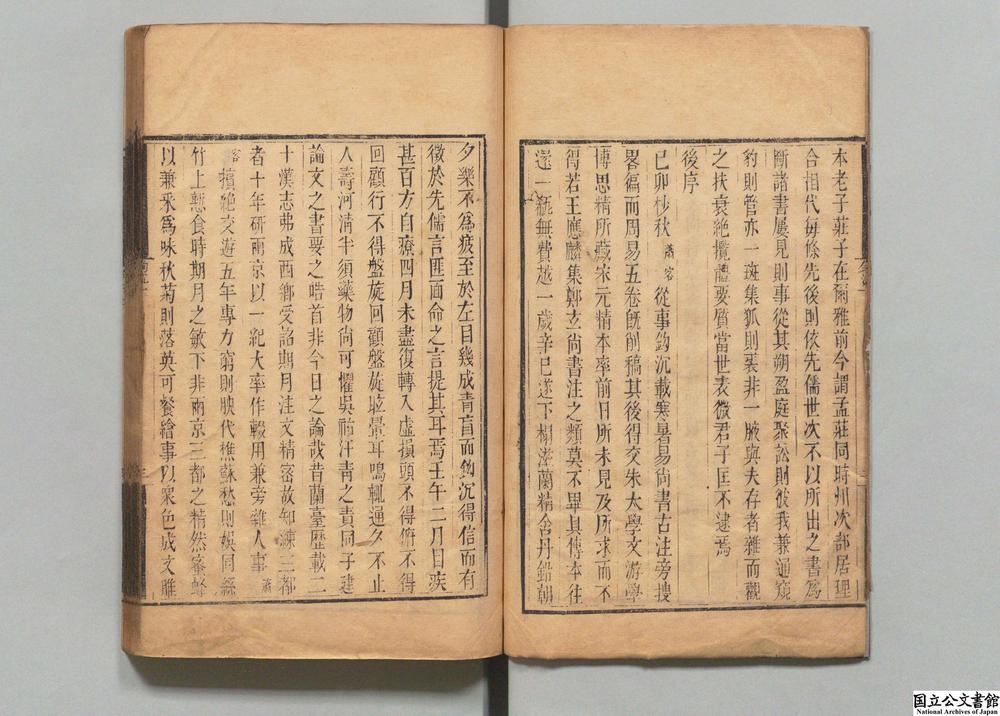 本老子莊子在爾雅前今謂孟莊同時州次部居理
合相代每條先後則依先儒世次不以所出之書爲
斷諸書屢見則事從其朔盈庭聚訟則彼我兼通窺
豹則管亦一斑集狐則裘非一腋與夫存者雜而觀
之扶衰絶攬體要質當世表微君子匡不逮焉
後序
己卯杪秋蕭客從事鈎沉載寒暑易尚書古注旁搜
畧徧而周易五卷旣削稿其後得交朱大學文游學
博思精所藏宋元精本率前日所未見及所求而不
得若王應麟集鄭玄尚書注之類莫不畢具傳本往
還一瓻無費越一歲辛巳遂下榻滋蘭精舍丹鉛朝
夕樂不爲疲至於左目幾成靑盲而鈎沉得信而有
徵於先儒言匪面命之言提其耳焉壬午二月日疾
甚百方自療四月未盡復轉入虛損頭不得俯不得
回顧行不得盤旋回顧盤旋眩暈耳鳴輒通夕不止
人壽河清半須藥物尚可懼吳祐汗靑之責同子建
論文之書要之晧首非今日之論哉昔蘭臺歷載二
十漢志弗成酉鄉受詔期月注文精密故知練三都
者十年研兩京以一紀大率作輟用兼旁雜人事蕭
客擯絶交遊五年專力窮則映代樵蘇愁則娛同絲
竹上慙食時期月之敏下非兩京三都之精然蜜蜂
以兼采爲味秋菊則落英可餐繪事以衆色成文雕
国立公文書館
National Archives of Japan